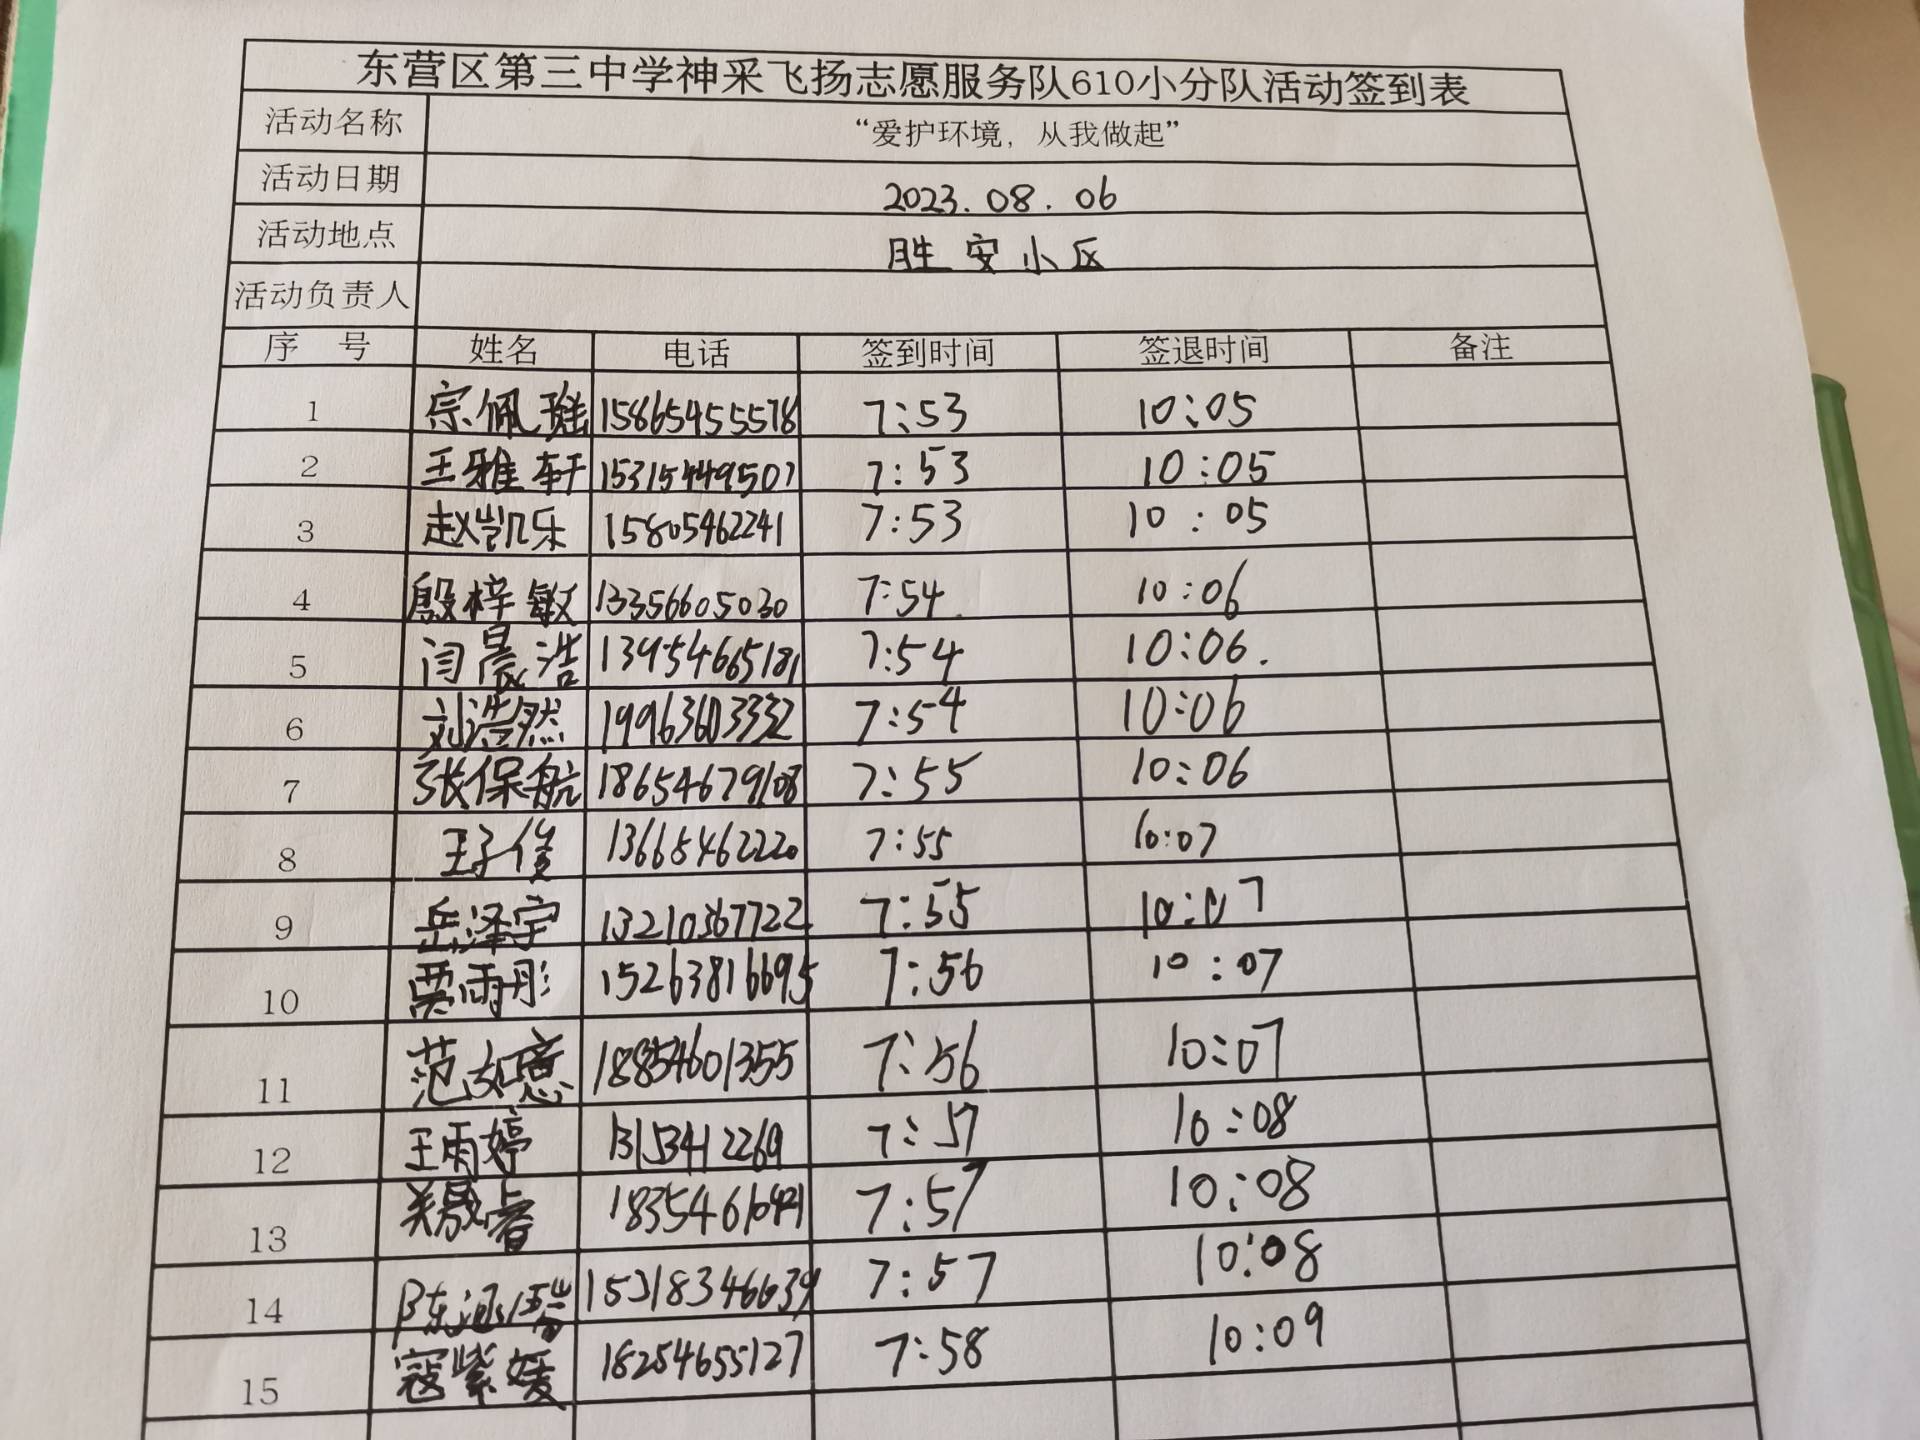 东营区第三中学神采飞扬志愿服务队610小分队活动签到表
活动名称 “爱护环境，从我做起”
活动日期 2023.08.06
活动地点 胜安小区
活动负责人
序 号 姓名 电话 签到时间 签退时间 备注
1 宗佩瑶 15865455578 7:53 10:05
2 王雅轩 15315449507 7:53 10:05
3 赵凯乐 15805462241 7:53 10:05
4 殷梓敏 13356605030 7:54 10:06
5 闫晨浩 13954665181 7:54 10:06.
6 刘浩然 19963603332 7:54 10:06
7 张保航 18654679108 7:55 10:06
8 王子俊 13665462220 7:55 10:07
9 岳泽宇 13210367722 7:55 10:07
10 雨彤 15263816695 7:56 10:07
11 范如意 18854601355 7:56 10:07
12 王雨婷 7:57 10:08
13 关晟睿 7:57 10:08
14 陈涵瑞 15318346639 7:57 10:08
15 寇紫媛 18254655127 7:58 10:09